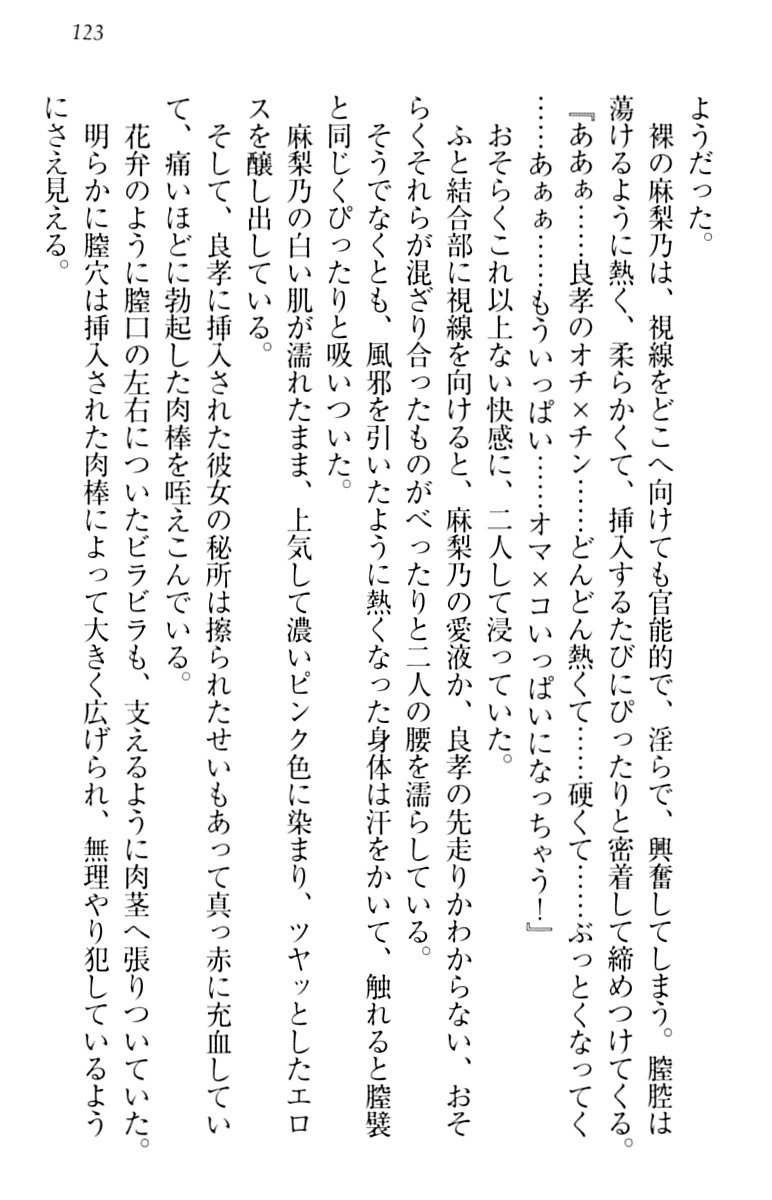 123
ようだった。
　裸の麻梨乃は、視線をどこへ向けても官能的で、淫らで、興奮してしまう。膣腔は
蕩けるように熱く、柔らかくて、挿入するたびにぴったりと密着して締めつけてくる。
『あぁぁ……良孝のオチ×チン……どんどん熱くて……硬くて……ぶっとくなってく
……あぁぁ……もういっぱい……オマ×コいっぱいになっちゃう！』
　おそらくこれ以上ない快感に、二人して浸っていた。
　ふと結合部に視線を向けると、麻梨乃の愛液か、良孝の先走りかわからない、おそ
らくそれらが混ざり合ったものがべったりと二人の腰を濡らしている。
　そうでなくとも、風邪を引いたように熱くなった身体は汗をかいて、触れると膣襞
と同じくぴったりと吸いついた。
　麻梨乃の白い肌が濡れたまま、上気して濃いピンク色に染まり、ツヤッとしたエロ
スを醸し出している。
　そして、良孝に挿入された彼女の秘所は擦られたせいもあって真っ赤に充血してい
て、痛いほどに勃起した肉棒を咥えこんでいる。
　花弁のように膣口の左右についたビラビラも、支えるように肉茎へ張りついていた。
　明らかに膣穴は挿入された肉棒によって大きく広げられ、無理やり犯しているよう
にさえ見える。